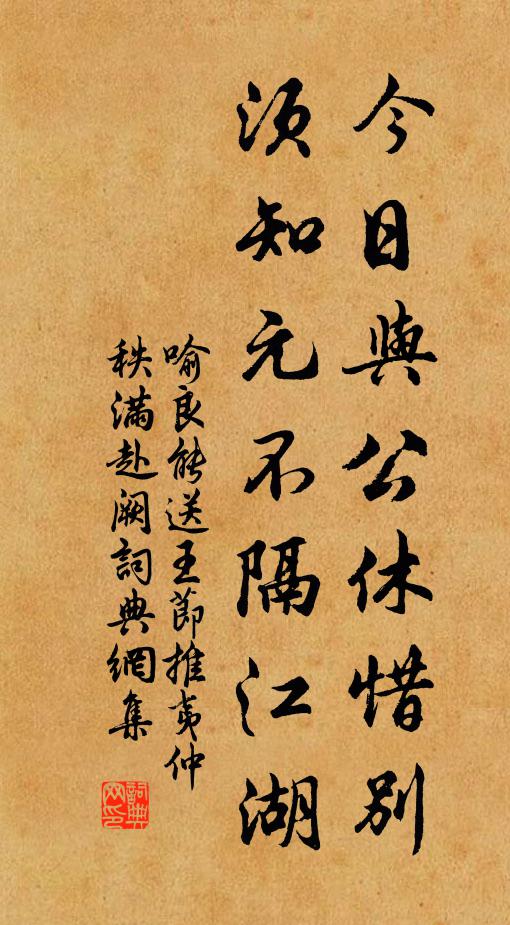 今日與公休惜別
須知元不隔江湖
喻良能送王節推夷仲
秩滿赴闕詞典網集
詞典
网印